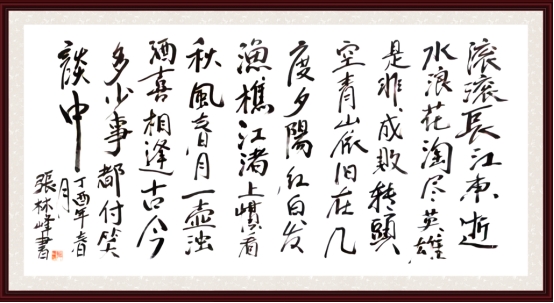 滚滚長江东逝
水浪花淘尽英雄
是非成败转頭
空青山依旧在几
度夕陽红白发
漁樵江渚上惯看
秋風春月一壶浊
酒喜相逢古今
多少事都付笑
談中
丁酉年春
月
張林峰書